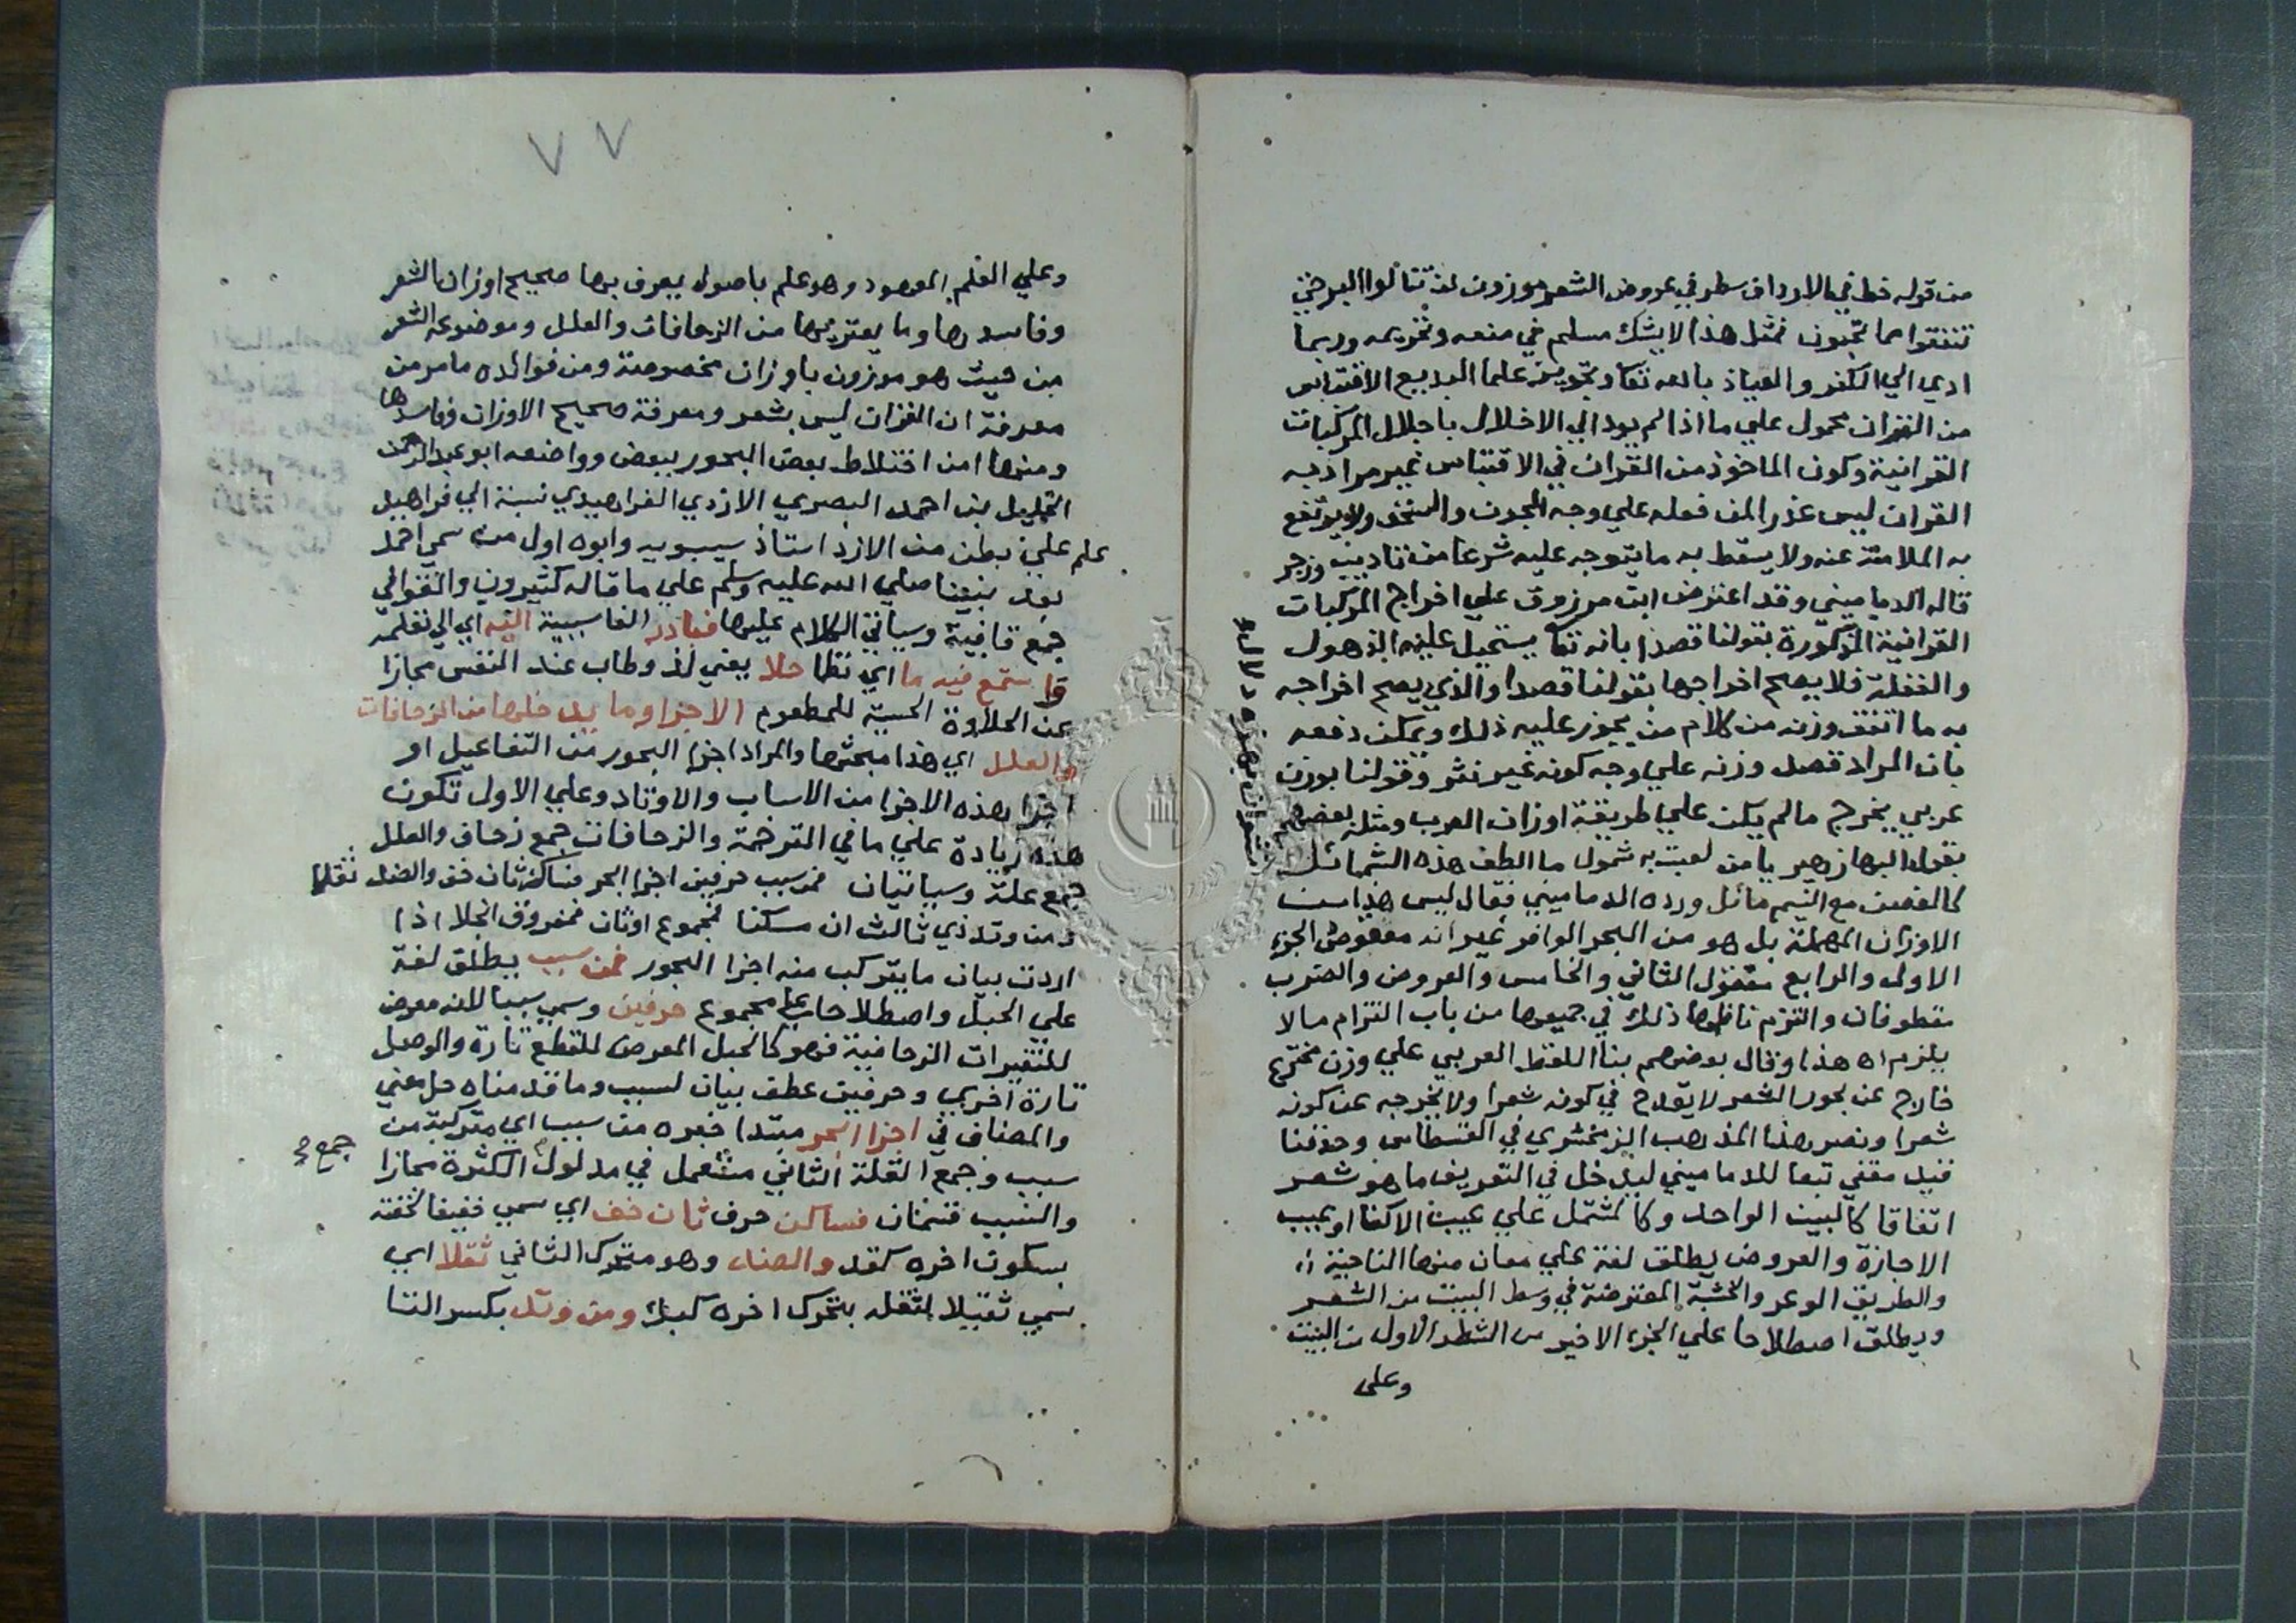 من قوله خط في الارداف سطر في عروض الشعر موزون لن تنالوا البر حتى
تنفقوا مما تحبون فمثل هذا لا يشك مسلم في منعه وتحريمه وربما
ادي الي الكفر والعياذ بالله تعا وتجويز علما البديع الاقتباس
من القران محمول علي ما اذا لم يود الي الاخلال باجلال المركبات
القرانية وكون الماخوذ من القران في الاقتباس غير مراد به
القران ليس عذرا لمن فعله علي وجه المجون والسخف ولا يرتفع
به الملامة عنه ولا يسقط به ما يتوجه عليه شرعا من تاديب وزجر
قاله الدماميني وقد اعترض ابن مرزوق علي اخراج المركبات
القرانية المذكورة بقولنا قصدا بانه تعا يستحيل عليه الذهول
والغفلة فلا يصح اخراجها بقولنا قصدا والذي يصح اخراجه
به ما اتفق وزنه من كلام من يجوز عليه ذلك ويمكن دفعه
بان المراد قصد وزنه علي وجه كونه غير نثر وقولنا بوزن
عربي يخرج ما لم يكن علي طريقة اوزان العرب ومثله بعضهم
بقول البها زهير يا من لعبت به شمول ما الطف هذه الشمائل
كالغصن مع النسيم مائل ورده الدماميني فقال ليس هذا من
الاوزان المهملة بل هو من البحر الوافر غير انه معقوص الجزء
الاول والرابع معقول الثاني والخامس والعروض والضرب
مقطوفان والتزم ناظمها ذلك في جميعها من باب التزام ما لا
يلزم اه هذا وقال بعضهم بنا اللفظ العربي علي وزن مخترع
خارج عن بحور الشعر لا يقدح في كونه شعرا ولا يخرجه عن كونه
شعرا ونصر هذا المذهب الزمخشري في القسطاس وحذفنا
قيد مقفي تبعا للدماميني ليدخل في التعريف ما هو شعر
اتفاقا كالبيت الواحد وكالمشتمل علي عيب الاكفا او عيب
الاجازة والعروض يطلق لغة علي معان منها الناحية
والطريق الوعر والخشبة المعترضة في وسط البيت من الشعر
ويطلق اصطلاحا علي الجزء الاخير من الشطر الاول من البيت
وعلى
وعلي العلم المعهود وهو علم باصول يعرف بها صحيح اوزان الشعر
وفاسدها وما يعتريها من الزحافات والعلل وموضوعه الشعر
من حيث هو موزون باوزان مخصوصة ومن فوائده ما مر من
معرفة ان القران ليس بشعر ومعرفة صحيح الاوزان وفاسدها
ومنها امن اختلاط بعض البحور ببعض وواضعه ابو عبد الرحمن
الخليل بن احمد البصري الازدي الفراهيدي نسبة الي فراهيد
علم علي بطن من الازد استاذ سيبويه وابوه اول من سمي احمد
بعد نبينا صلي الله عليه وسلم علي ما قاله كثيرون والقوافي
جمع قافية وسياتي الكلام عليها فبادر الفا سببية اليه اي الي تعلمه
واستمع فيه ما اي نظما حلا يعني لذ وطاب عند النفس مجازا
عن الحلاوة الحسية للمطعوم الاجزا وما يدخلها من الزحافات
والعلل اي هذا مبحثها والمراد اجزا البحور من التفاعيل او
اجزا هذه الاجزا من الاسباب والاوتاد وعلي الاول تكون
هذه زيادة علي ما في الترجمة والزحافات جمع زحاف والعلل
جمع علة وسياتيان فمن سبب حرفين اجزا البحر فساكن ثان خف والضد ثقلا
ومن وتد ذي ثالث ان سكنا فمجموع او ثان فمفروق انجلا اذا
اردت بيان ما يتركب منه اجزا البحور فمن سبب يطلق لغة
علي الحبل واصطلاحا علي مجموع حرفين وسمي سببا لانه معرض
للتغيرات الزحافية فهو كالحبل المعرض للقطع تارة والوصل
تارة اخري وحرفين عطف بيان لسبب وما قدمناه حل معني
والمضاف في اجزا البحر مبتدا خبره من سبب اي متركبة من
سبب وجمع القلة الثاني مستعمل في مدلول الكثرة مجازا
جمع
والسبب قسمان فساكن حرف ثان خف اي سمي خفيفا لخفته
بسكون اخره كقد والضد وهو متحرك الثاني ثقلا اي
سمي ثقيلا لثقله بتحرك اخره كبك ومن وتد بكسر التا